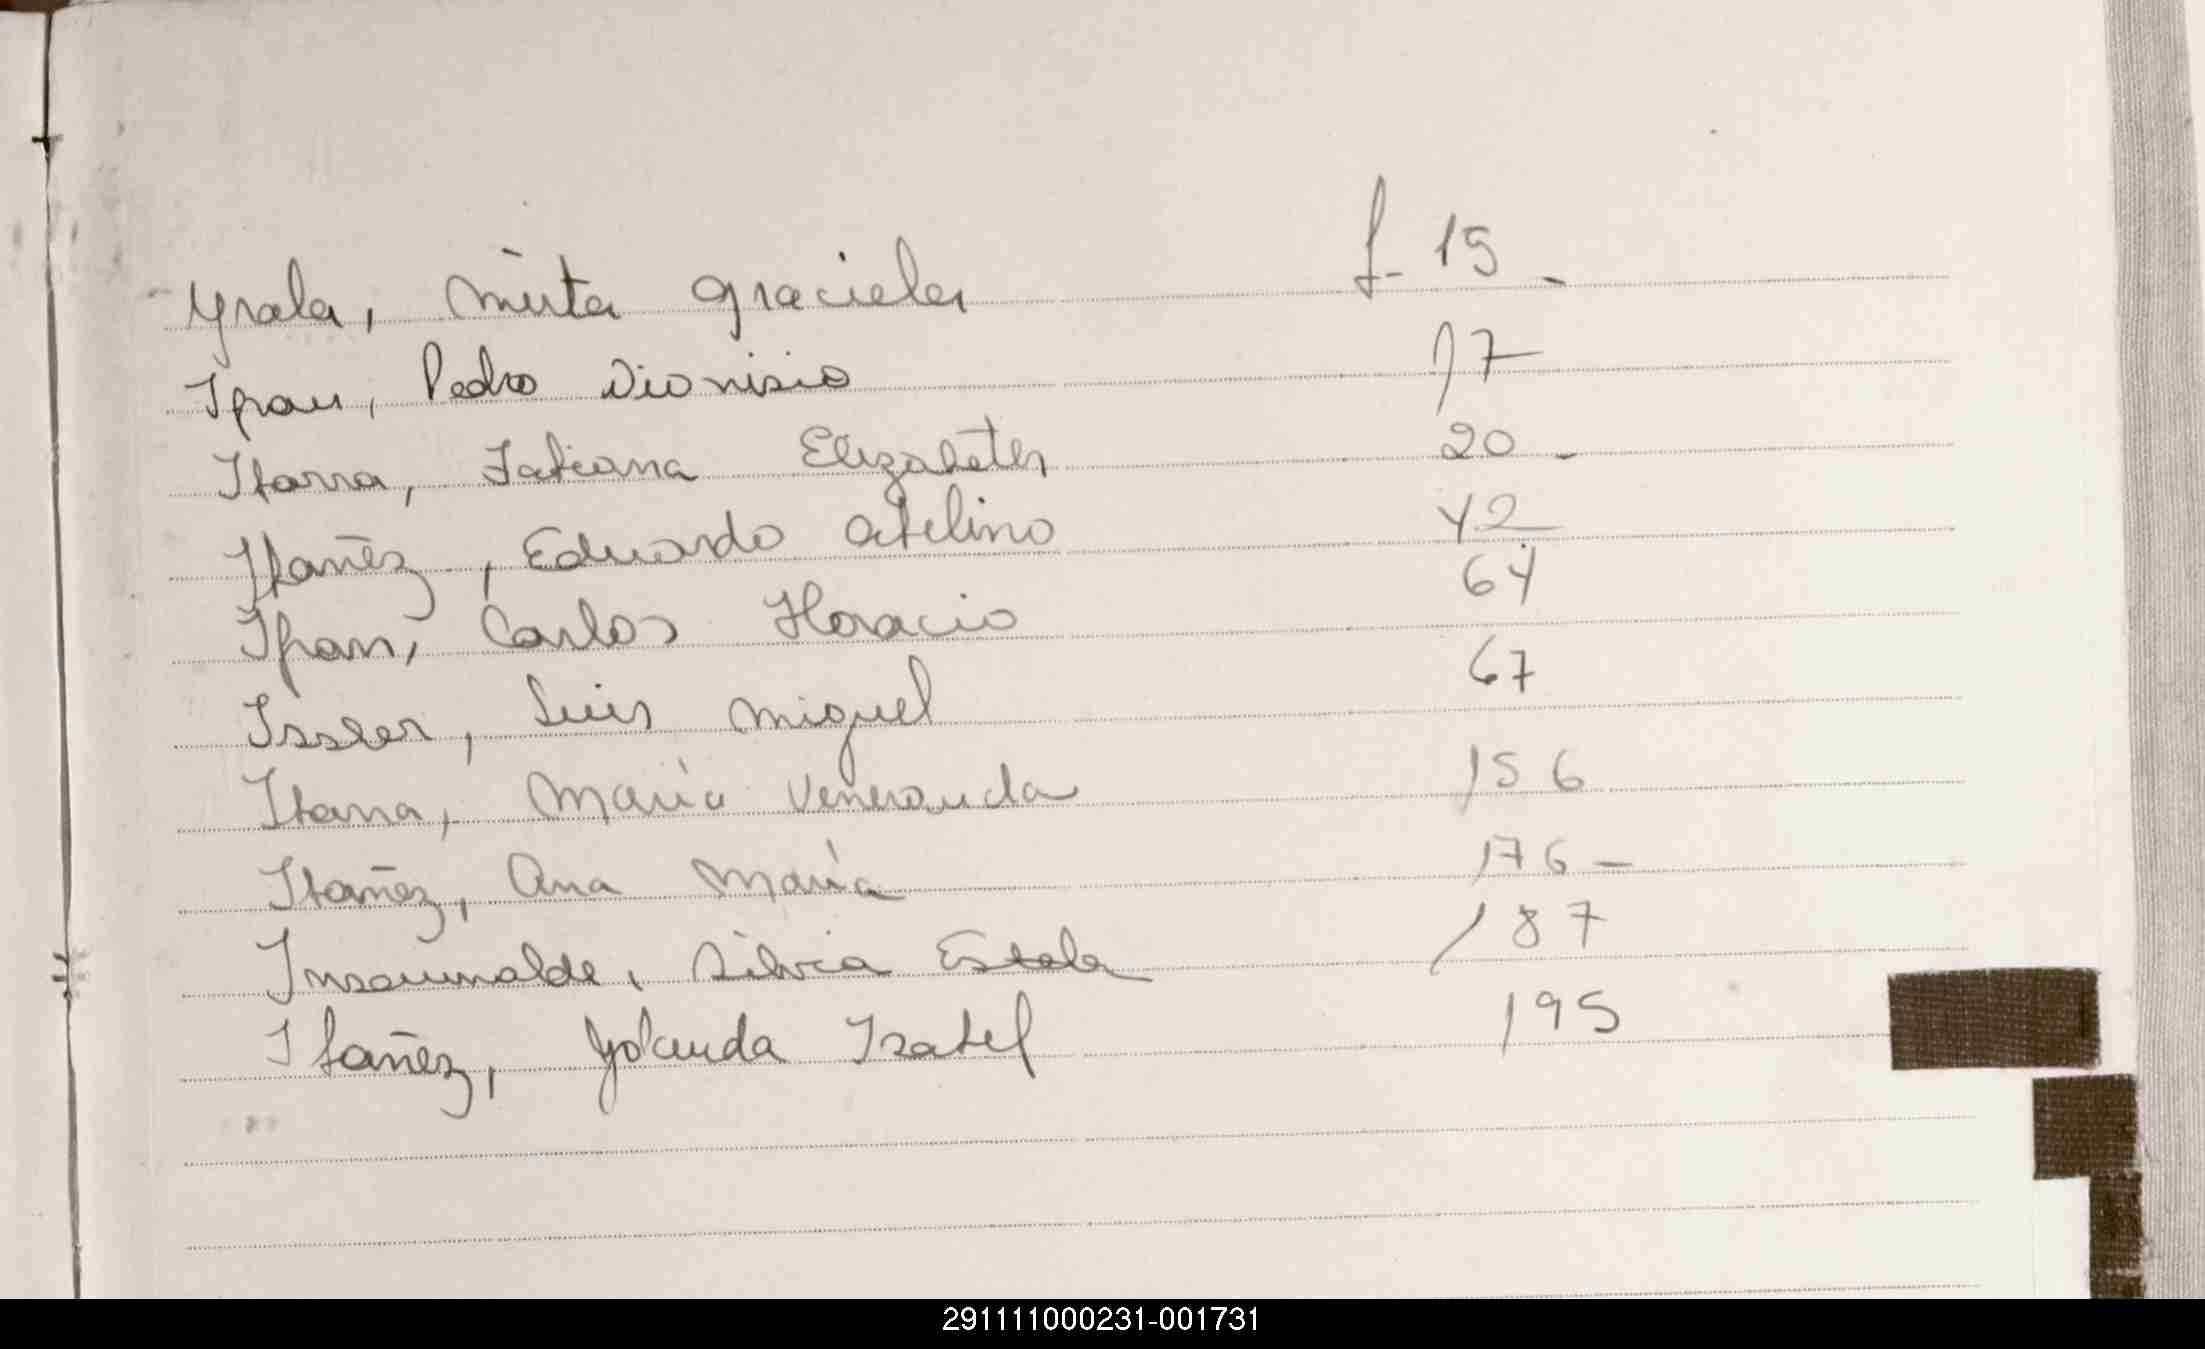 Yrala, Mirta Graciela f- 15 -
Ifran, Pedro Dionisio 17
Ibarra, Tatiana Elizabeth 20 -
Ibañez, Eduardo Avelino 42
Ifran, Carlos Horacio 64
Issler, Luis Miguel 67
Ibarra, María Veneranda 156
Ibañez, Ana María 176 -
Insaurralde, Silvia Estela 187
Ibañez, Yolanda Isabel 195
291111000231-001731